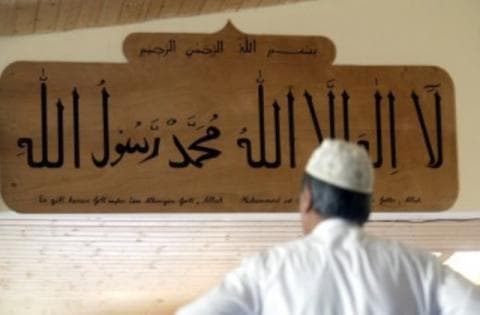 بسم الله الرحمن الرحيم
لا إله إلا الله محمد رسول الله
Es gibt keinen Gott außer dem Gott, Allah Muhammad ist Allah